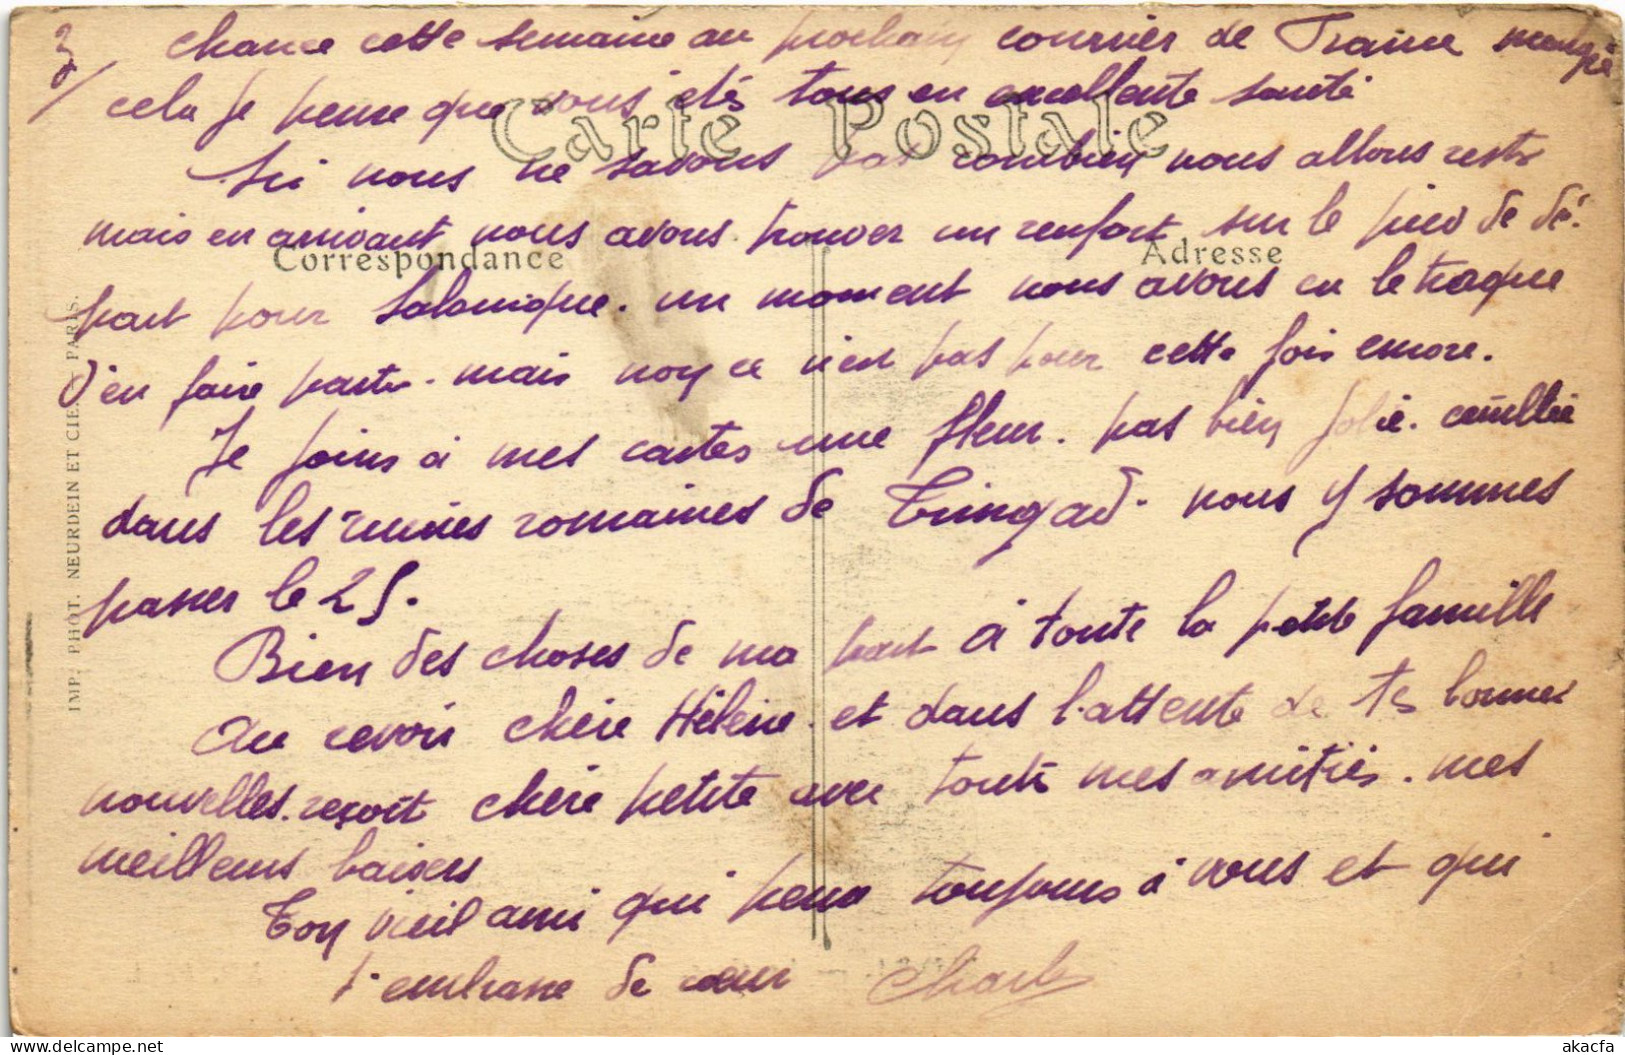 3/ chance cette semaine au prochain courrier de France malgré
cela je pense que vous étés tous en excellente santé
Carte Postale
Ici nous ne savons pas combien nous allons rester
mais en arrivant nous avons trouver un renfort sur le pied de dé-
Correspondance
Adresse
part pour Salonique. un moment nous avons eu le traque
d'en faire parti. mais non ce n'est pas pour cette fois encore.
Je joins à mes cartes une fleur. pas bien jolie. ceuillie
dans les ruines romaines de Timgad. nous y sommes
passer le 25.
Bien des choses de ma part à toute la petite famille
Au revoir chère Hélène. et dans l'attente de tes bonnes
nouvelles. reçoit chère petite avec toutes mes amitiés. mes
meilleurs baisers
Ton vieil ami qui pense toujours à vous et qui
t'embrasse de cœur Charles
IMP. PHOT. NEURDEIN ET CIE. — PARIS.
akacfa
delcampe.net